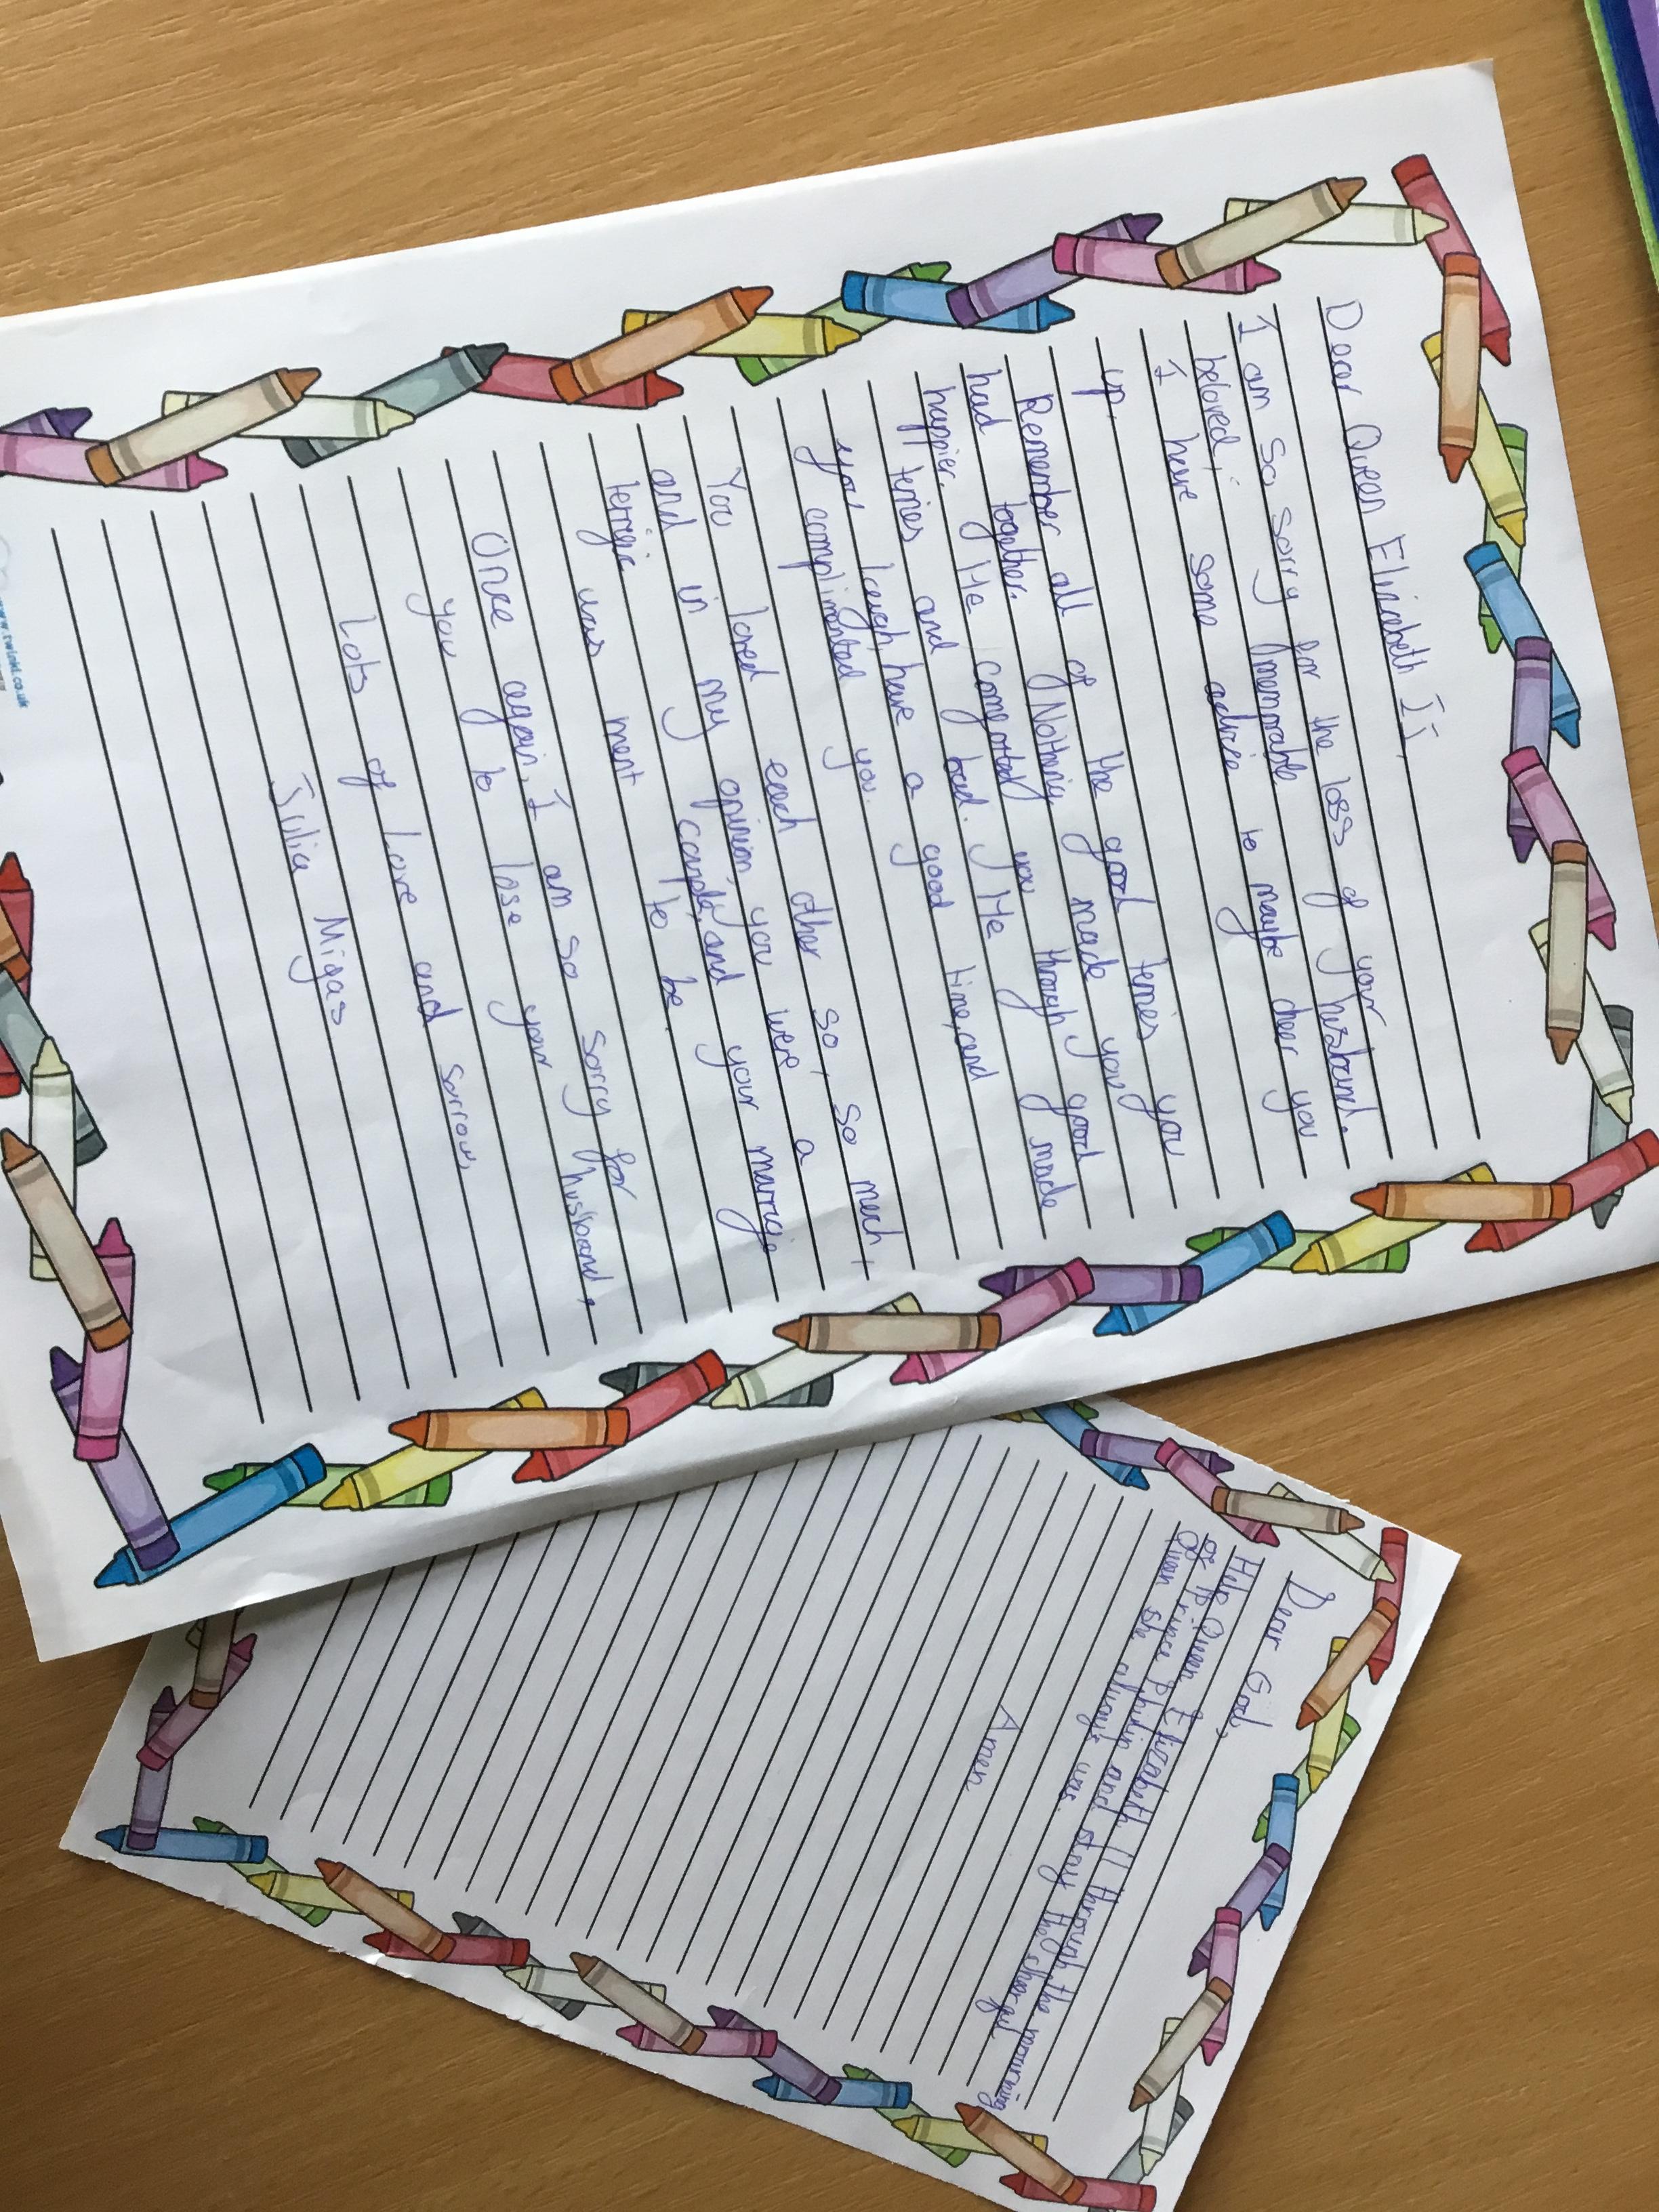 Dear Queen Elizabeth II,
I am so sorry for the loss of your
beloved, memorable husband.
I have some advice to maybe cheer you
up.
Remember all of the good temies you
had together. Nothing made you
happier. He comforted you through good
temies and bad. He made
you laugh, have a good time, and
complimented you.
You loved each other so, so much,
and in my opinion, you were a
terrific couple, and your marrige
was ment to be.
Once again, I am so sorry for
you to lose your husband.
Lots of love and sorrow,
Julia Migas
www.twinkl.co.uk
Dear God,
Help Queen Elizabeth II through the mourning
of Prince Philip and stay the cheerful
Queen she always was.
Amen